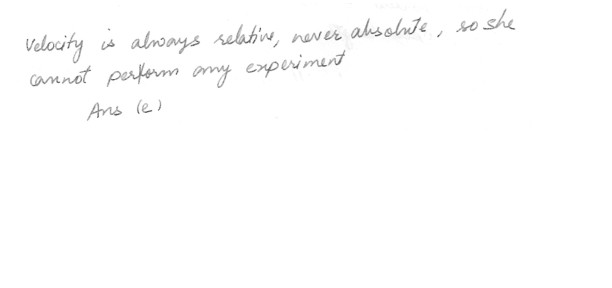 Velocity is always relative, never absolute, so she
cannot perform any experiment
Ans (e)